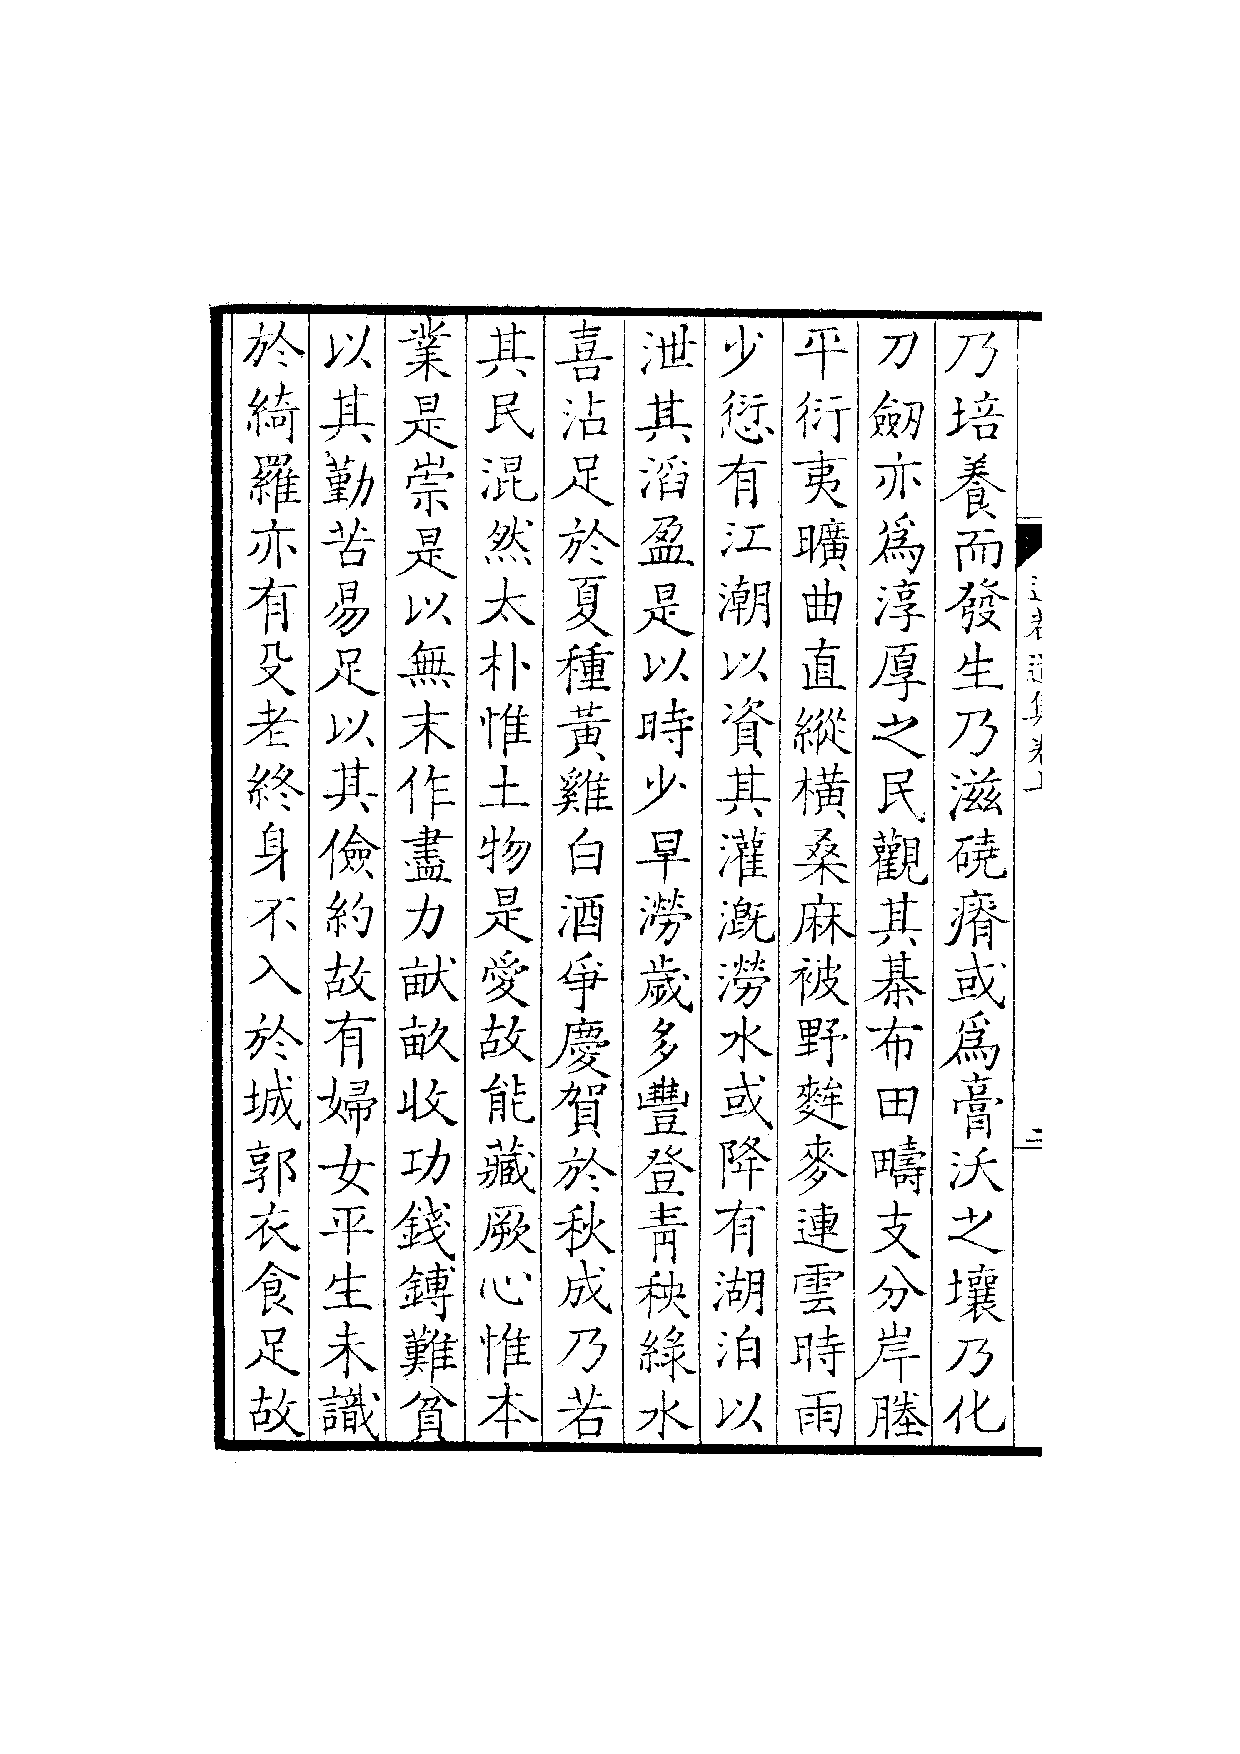 乃培養而發生乃滋磽瘠或爲膏沃之壤乃化
刀劒亦爲淳厚之民觀其棊布田疇支分岸塍
平衍夷曠曲直縱橫桑麻被野麰麥連雲時雨
少愆有江潮以資其灌漑澇水或降有湖泊以
泄其滔盈是以時少旱澇歲多豐登青秧綠水
喜沾足於夏種黃雞白酒爭慶賀於秋成乃若
其民混然太朴惟土物是愛故能藏厥心惟本
業是崇是以無末作盡力畎畝收功錢鎛難貧
以其勤苦易足以其儉約故有婦女平生未識
於綺羅亦有殳老終身不入於城郭衣食足故
集卷上